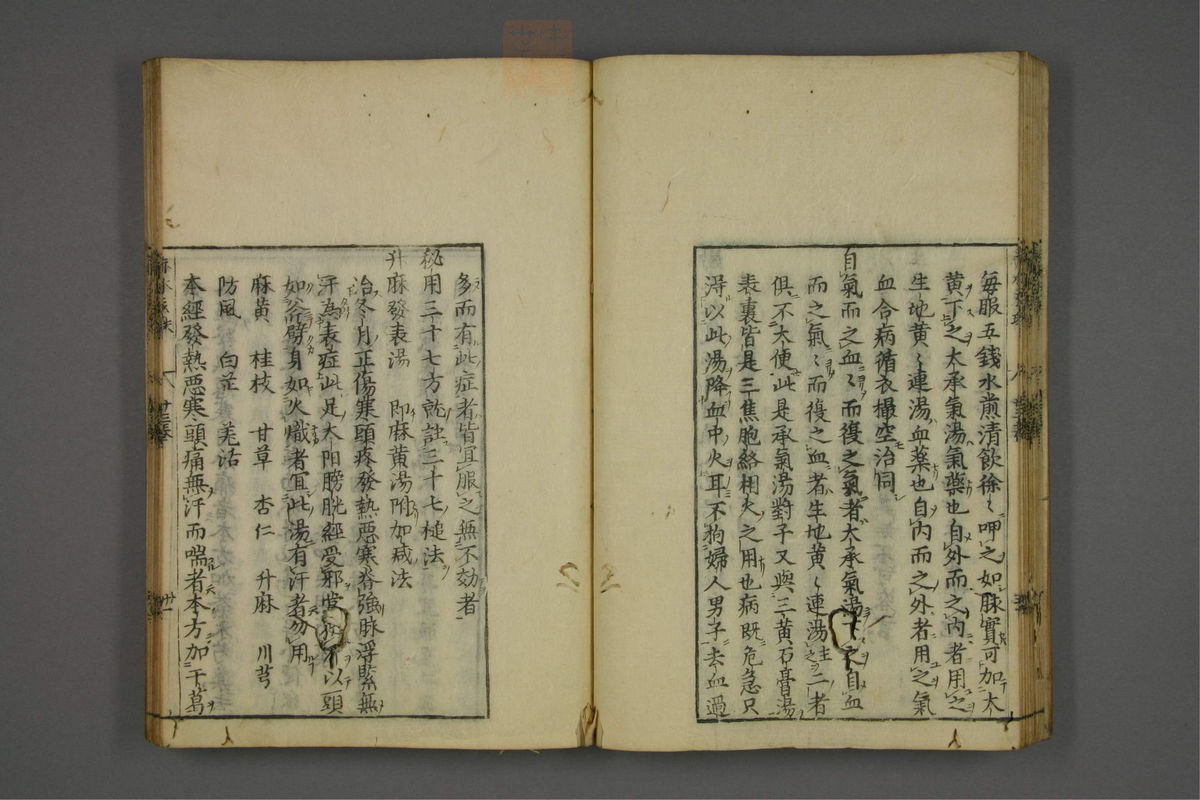 毎服五錢水煎清飲徐〻呷之如脉實可加大
黄下之大承氣湯氣藥也自外而之内者用之
生地黄〻連湯血藥也自内而之外者用之氣
血合病循衣撮空治同
自氣而之血〻而復之氣者大承氣湯下之自血
而之氣〻而復之血者生地黄〻連湯主之二者
俱不大便此是承氣湯對子又與三黄石膏湯
表裏皆是三焦胞絡相火之用也病既危急只
淂以此湯降血中火耳不狗婦人男子去血過
多而有此症者皆宜服之無不効者
秘用三十七方就註三十七槌法
升麻發表湯 即麻黄湯附加咸法
治冬月正傷寒頭疼發熱惡寒脊強脉浮緊無
汗為表症此足太阳膀胱經受邪當 以頭
如斧劈身如火熾者宜此湯有汗者勿用
麻黄 桂枝 甘草 杏仁 升麻 川芎
防風 白芷 羌活
本經發熱惡寒頭痛無汗而喘者本方加干葛